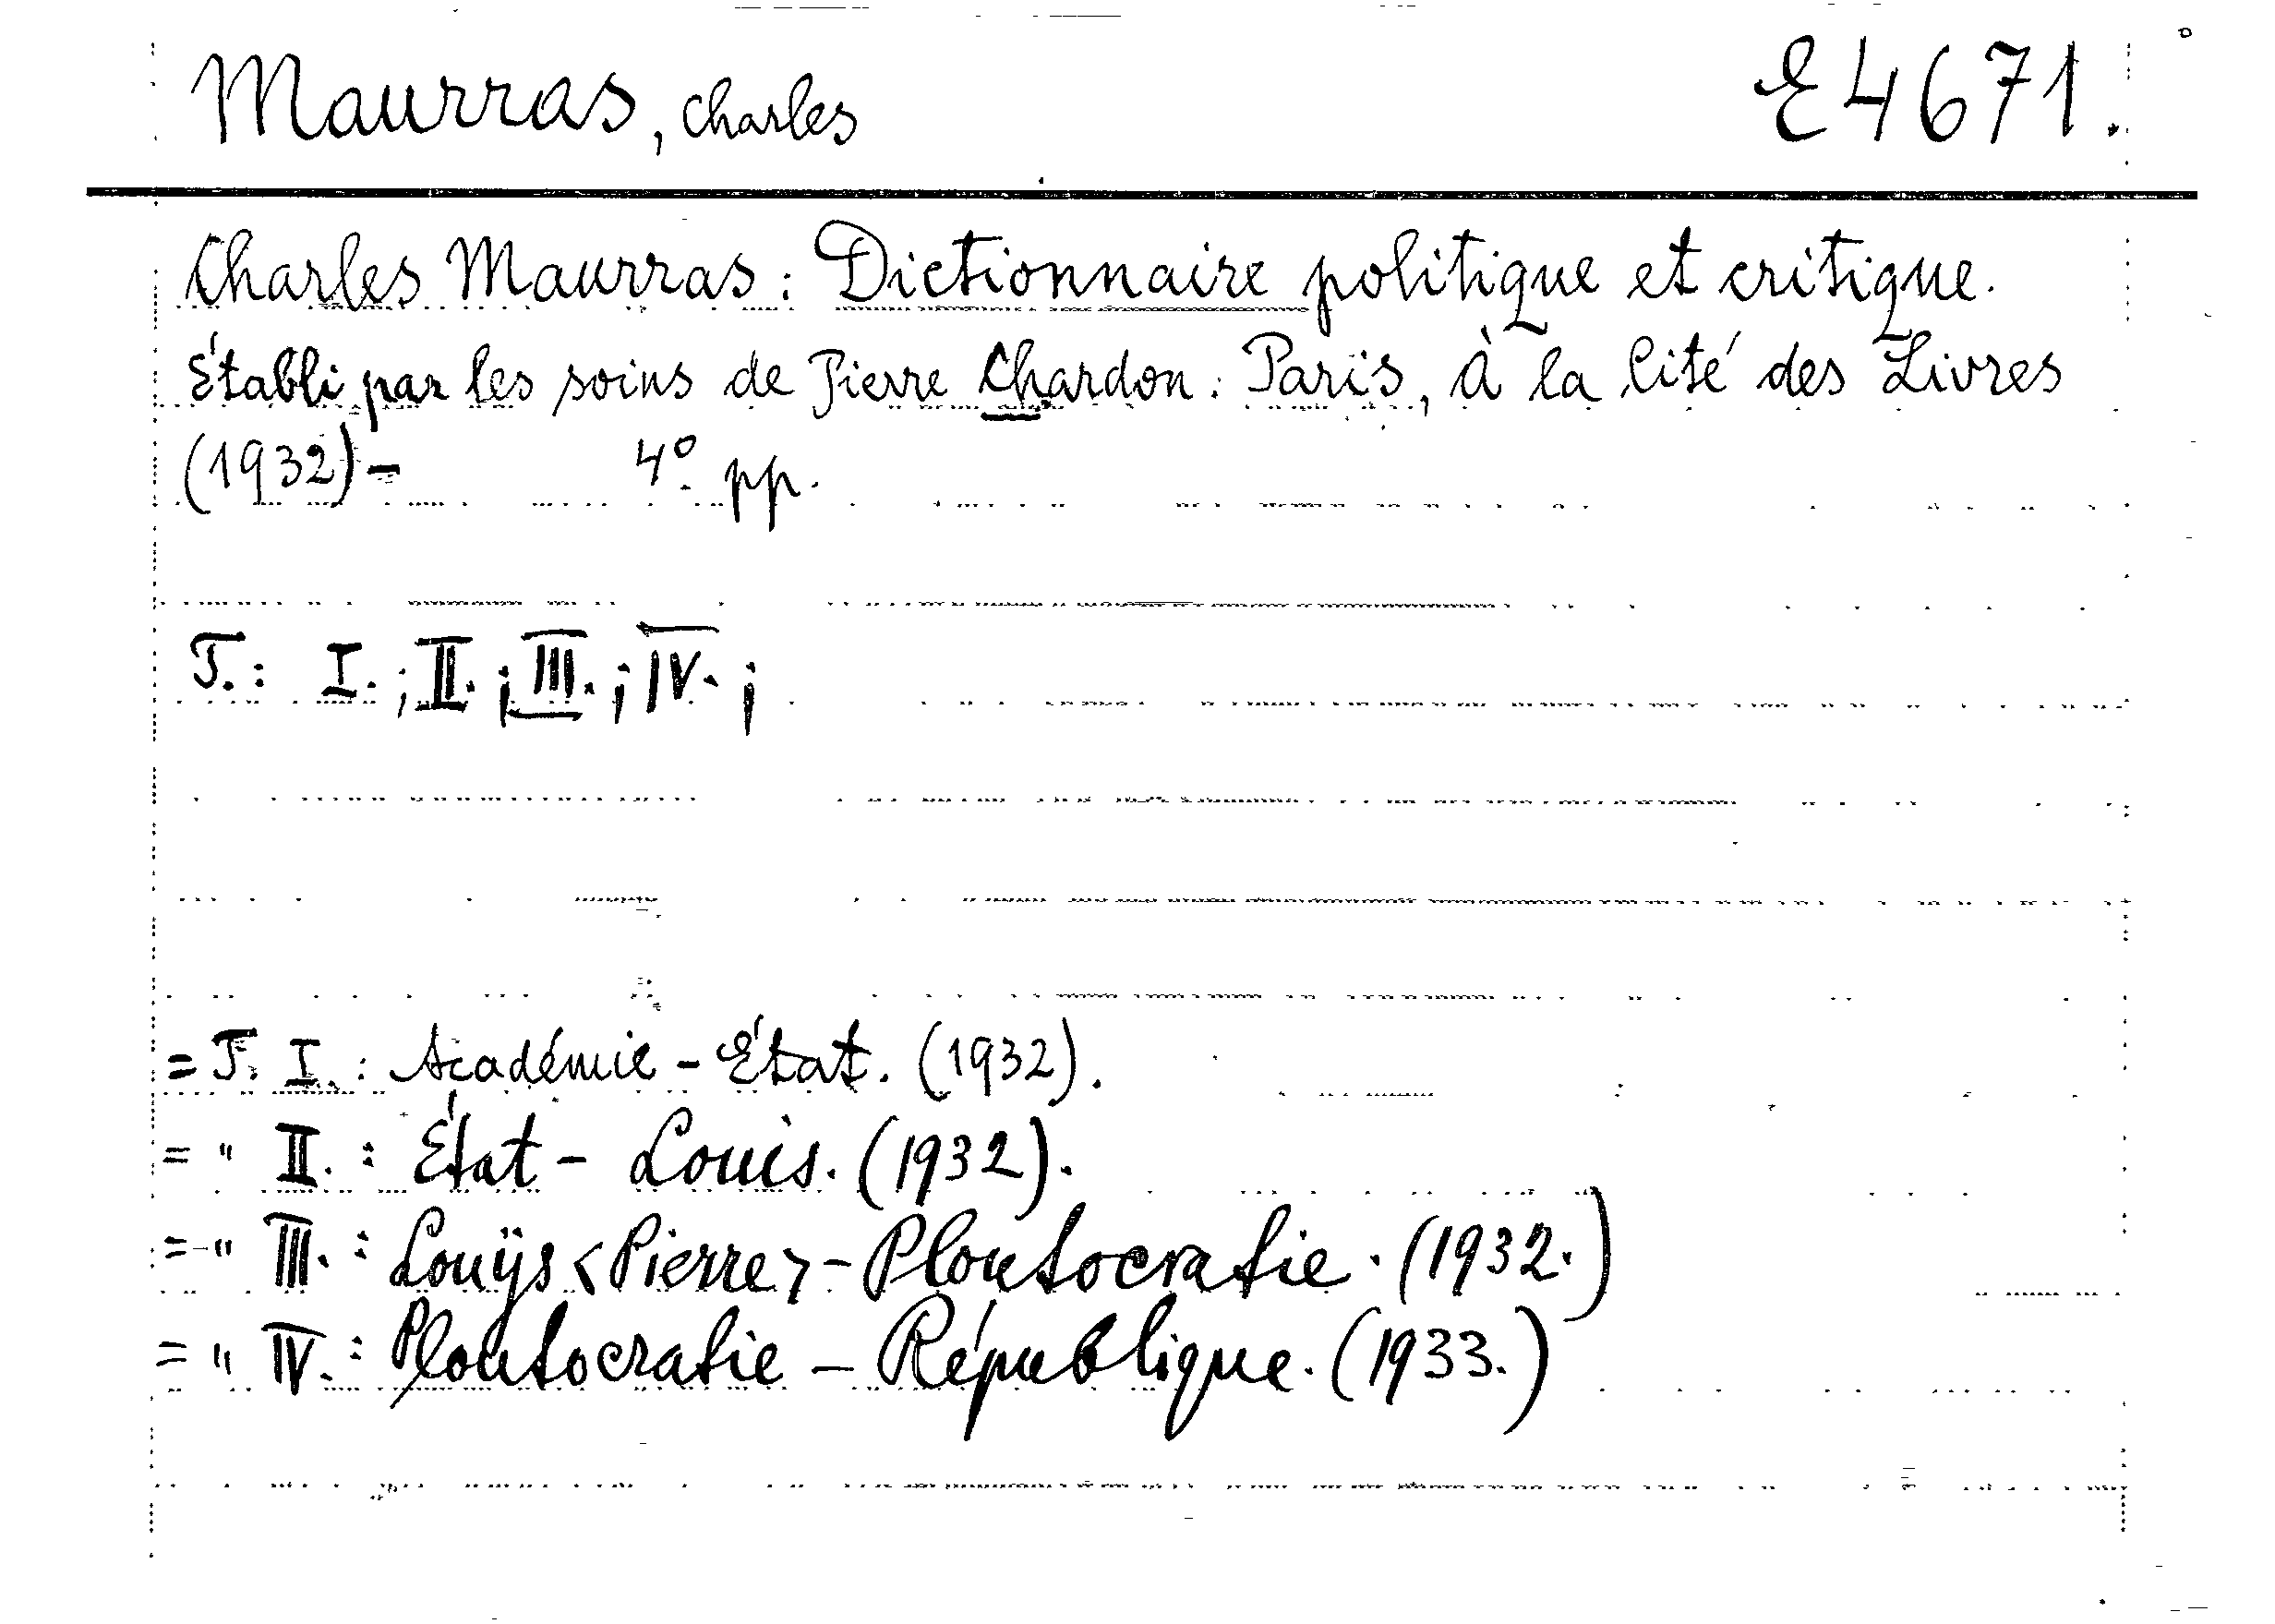 Maurras, Charles E4671.
Charles Maurras: Dictionnaire politique et critique.
Établi par les soins de Pierre Chardon. Paris, à la Cité des Livres
(1932)- 4º pp.
T.: I.; II.; III.; IV.;
= T. I.: Académie - État. (1932).
= " II.: État - Louis. (1932).
= " III.: Louÿs <Pierre> - Ploutocratie. (1932.)
= " IV.: Ploutocratie - République. (1933.)